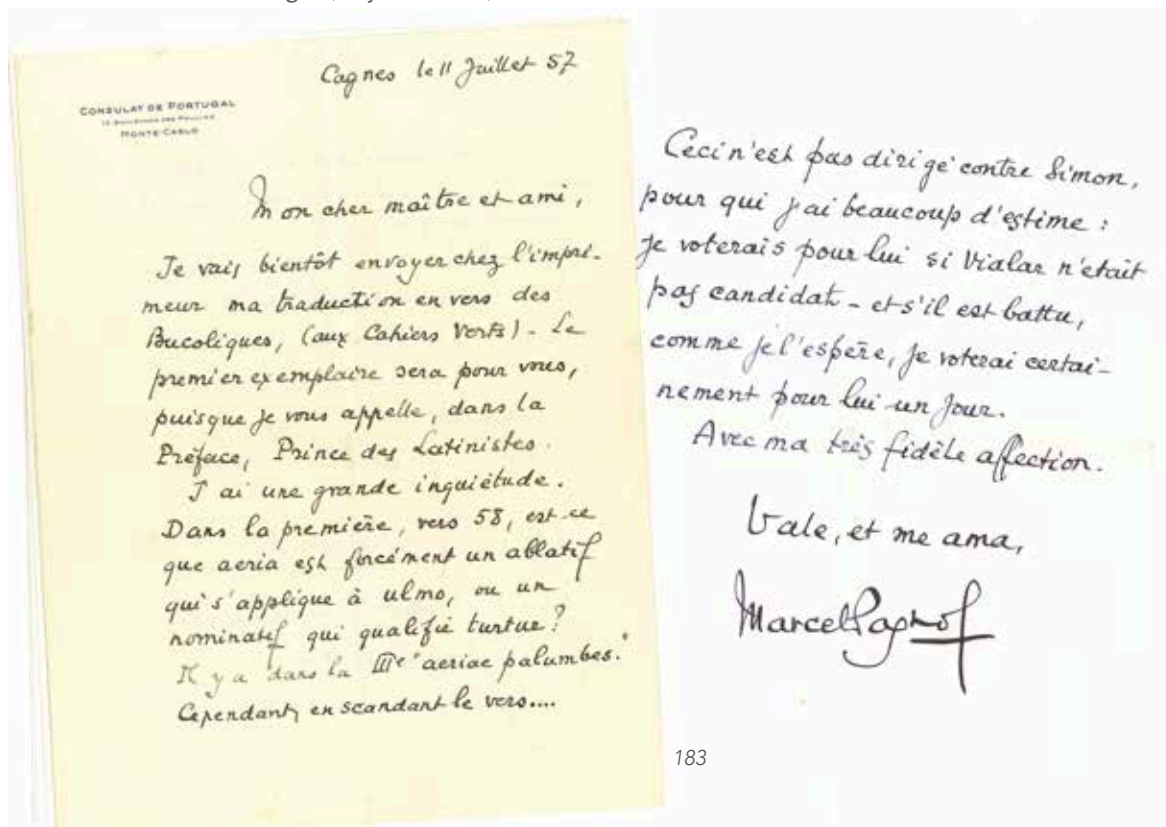 Cagnes le 11 Juillet 57
CONSULAT DE PORTUGAL
MONTE-CARLO
Mon cher maître et ami,
Je vais bientôt envoyer chez l'impri-
meur ma traduction en vers des
Bucoliques, (aux Cahiers Verts) - Le
premier exemplaire sera pour vous,
puisque je vous appelle, dans la
Préface, Prince des Latinistes.
J'ai une grande inquiétude.
Dans la première, vers 58, est-ce
que aeria est forcément un ablatif
qui s'applique à ulmo, ou un
nominatif qui qualifie turtur?
Il y a dans la IIIe "aeriae palumbes."
Cependant, en scandant le vers....
Ceci n'est pas dirigé contre Simon,
pour qui j'ai beaucoup d'estime :
je voterais pour lui si Vialar n'était
pas candidat - et s'il est battu,
comme je l'espère, je voterai certai-
nement pour lui un jour.
Avec ma très fidèle affection.
Vale, et me ama,
Marcel Pagnol
183